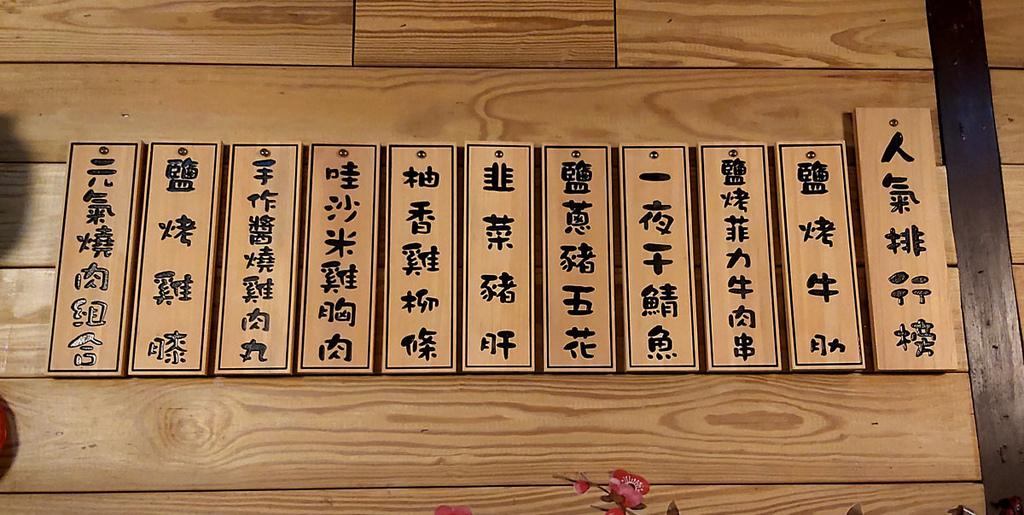 人氣排行榜
鹽烤牛肋
鹽烤菲力牛肉串
一夜干鯖魚
鹽蔥豬五花
韭菜豬肝
柚香雞柳條
哇沙米雞胸肉
手作醬燒雞肉丸
鹽烤雞膝
元氣燒肉組合